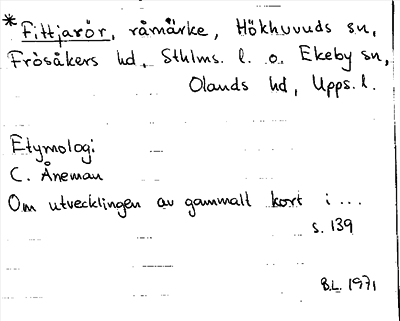 *Fittjarör, råmärke, Hökhuvuds sn,
Frösåkers hd, Sthlms. l. o. Ekeby sn,
Olands hd, Upps. l.
Etymologi
C. Åneman
Om utvecklingen av gammalt kort i ...
s. 139
B.L. 1971